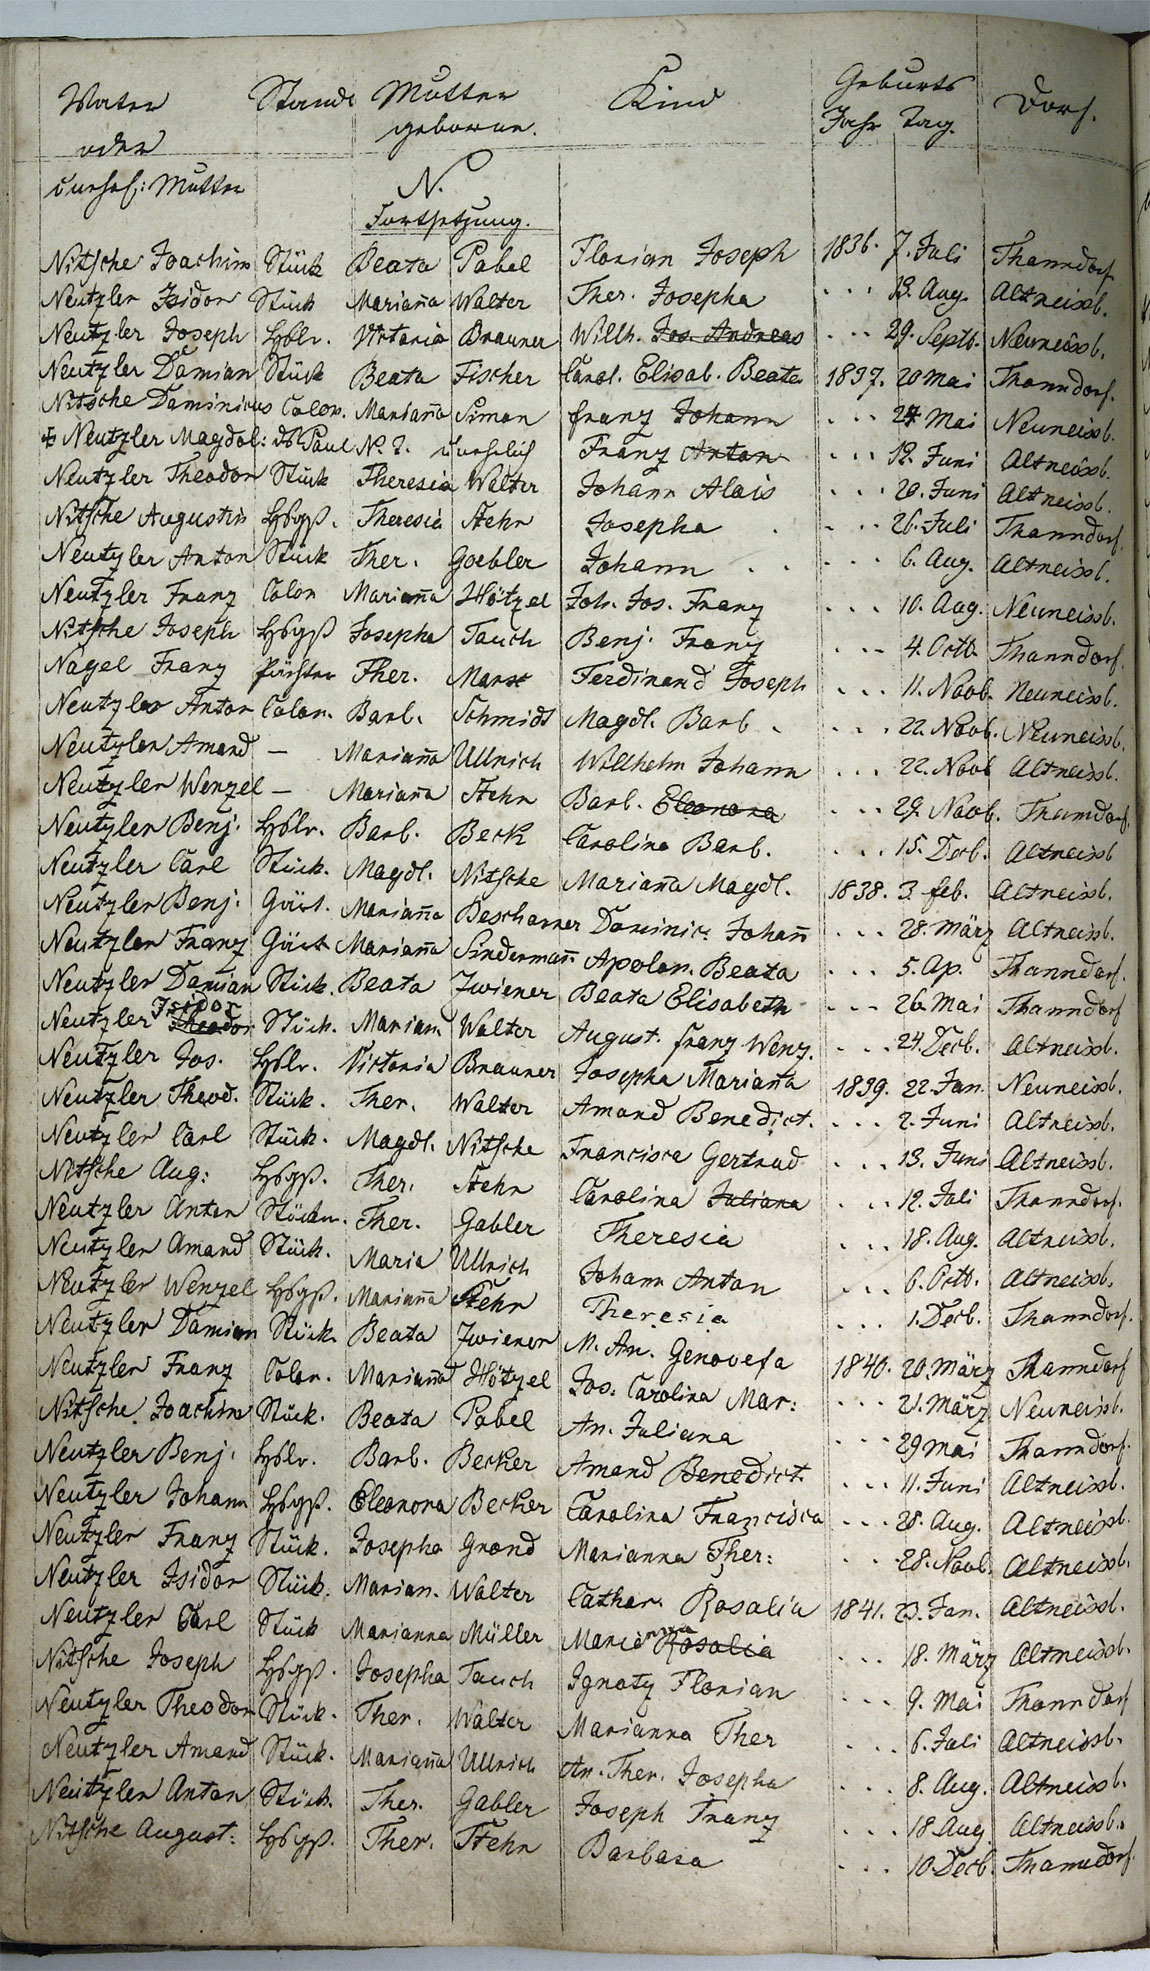 Vater Stand Mutter Kind Geburts Dorf.
oder geborne. Jahr Tag.
unehel: Mutter N.
Fortsetzung.
Nitsche Joachim Stück Beata Pabel Florian Joseph 1836. 7. Juli Thanndorf
Neutzler Isidor Stück Mariaña Walter Ther. Josepha . . . 13. Aug. Altneissb.
Neutzler Joseph Hslr. Victoria Brauner Willh. Jos. Andreas . . . 29. Septb. Neuneissb.
Neutzler Damian Stück Beata Fischer Carol. Elisab. Beata 1837. 20 Mai Thanndorf.
Nitsche Dominicus Colon. Mariaña Simon Franz Johann . . . 24 Mai Neuneissb.
Neutzler Magdal: Paul No. 7. unehelich Franz Anton . . . 12. Juni Altneissb.
Neutzler Theodor Stück Theresia Walter Johann Alois . . . 20. Juni Altneissb.
Nitsche Augustin Hsgß. Theresia Stehr Josepha . . . 26. Juli Thanndorf.
Neutzler Anton Stück Ther. Goebler Johann . . . 6. Aug. Altneissb.
Neutzler Franz Colon Mariaña Hötzel Joh. Jos. Franz . . . 10. Aug. Neuneissb.
Nitsche Joseph Hsgß Josepha Tauch Benj. Franz . . . 4. Octb. Thanndorf.
Nagel Franz Pächter Ther. Marx Ferdinand Joseph . . . 11. Novb. Neuneissb.
Neutzler Anton Colon. Barb. Schmidt Magdl. Barb. . . . 22. Novb. Neuneissb.
Neutzler Amand – Mariaña Ullrich Willhelm Johann . . . 22. Novb Altneissb.
Neutzler Wenzel – Mariaña Stehr Barb. Eleonora . . . 29. Novb. Thanndorf.
Neutzler Benj. Hslr. Barb. Beck Carolina Barb. . . . 15. Decb. Altneissb
Neutzler Carl Stück. Magdl. Nitsche Mariaña Magdl. 1838. 3. Feb. Altneissb.
Neutzler Benj. Gärt. Mariaña Bescharner Dominic: Johañ . . . 28. März Altneissb.
Neutzler Franz Gärt Mariaña Sindermañ Apolon. Beata . . . 5. Ap. Thanndorf.
Neutzler Damian Stück. Beata Zwiener Beata Elisabeth . . . 26. Mai Thanndorf
Isidor
Neutzler Theodor Stück. Mariann Walter August. Franz Wenz. . . . 24. Decb. Altneissb.
Neutzler Jos. Hslr. Victoria Brauner Josepha Mariaña 1839. 22. Jan. Neuneissb.
Neutzler Theod. Stück. Ther. Walter Amand Benedict. . . . 2. Juni Altneissb.
Neutzler Carl Stück. Magdl. Nitsche Francisca Gertrud . . . 13. Juni Altneissb.
Nitsche Aug: Hsgß. Ther. Stehr Carolina Juliana . . . 12. Juli Thanndorf.
Neutzler Anton Ther. Gabler Theresia . . . 18. Aug. Altneissb.
Neutzler Amand Stück. Maria Ullrich Johann Anton . . . 6. Octb. Altneissb.
Neutzler Wenzel Hsgß. Mariaña Stehr Theresia . . . 1. Decb. Thanndorf.
Neutzler Damian Stück. Beata Zwiener M. An. Genovefa 1840. 20. März Thanndorf
Neutzler Franz Colon. Mariaña Hötzel Jos. Carolina Mar: . . . 21. März Neuneissb.
Nitsche Joachim Stück. Beata Pabel An. Juliana . . . 29 Mai Thanndorf.
Neutzler Benj. Hslr. Barb. Becker Amand Benedict. . . . 11. Juni Altneissb.
Neutzler Johann Hsgß. Eleonora Becker Carolina Francisca . . . 28. Aug. Altneissb.
Neutzler Franz Stück. Josepha Grond Marianna Ther: . . . 28. Novb. Altneissb.
Neutzler Isidor Stück. Marian. Walter Cathar. Rosalia 1841. 23. Jan. Altneissb.
Neutzler Carl Stück Marianna Müller Marianna Rosalia . . . 18. März Altneissb.
Nitsche Joseph Hsgß. Josepha Tauch Ignatz Florian . . . 9. Mai Thanndorf
Neutzler Theodor Stück. Ther. Walter Marianna Ther . . . 6. Juli Altneissb.
Neutzler Amand Stück. Mariaña Ullrich An. Ther. Josepha . . . 8. Aug. Altneissb.
Neutzler Anton Stück. Ther. Gabler Joseph Franz . . . 18 Aug. Altneissb.
Nitsche August: Hsgß. Ther. Stehr Barbara . . . 10. Decb. Thanndorf.